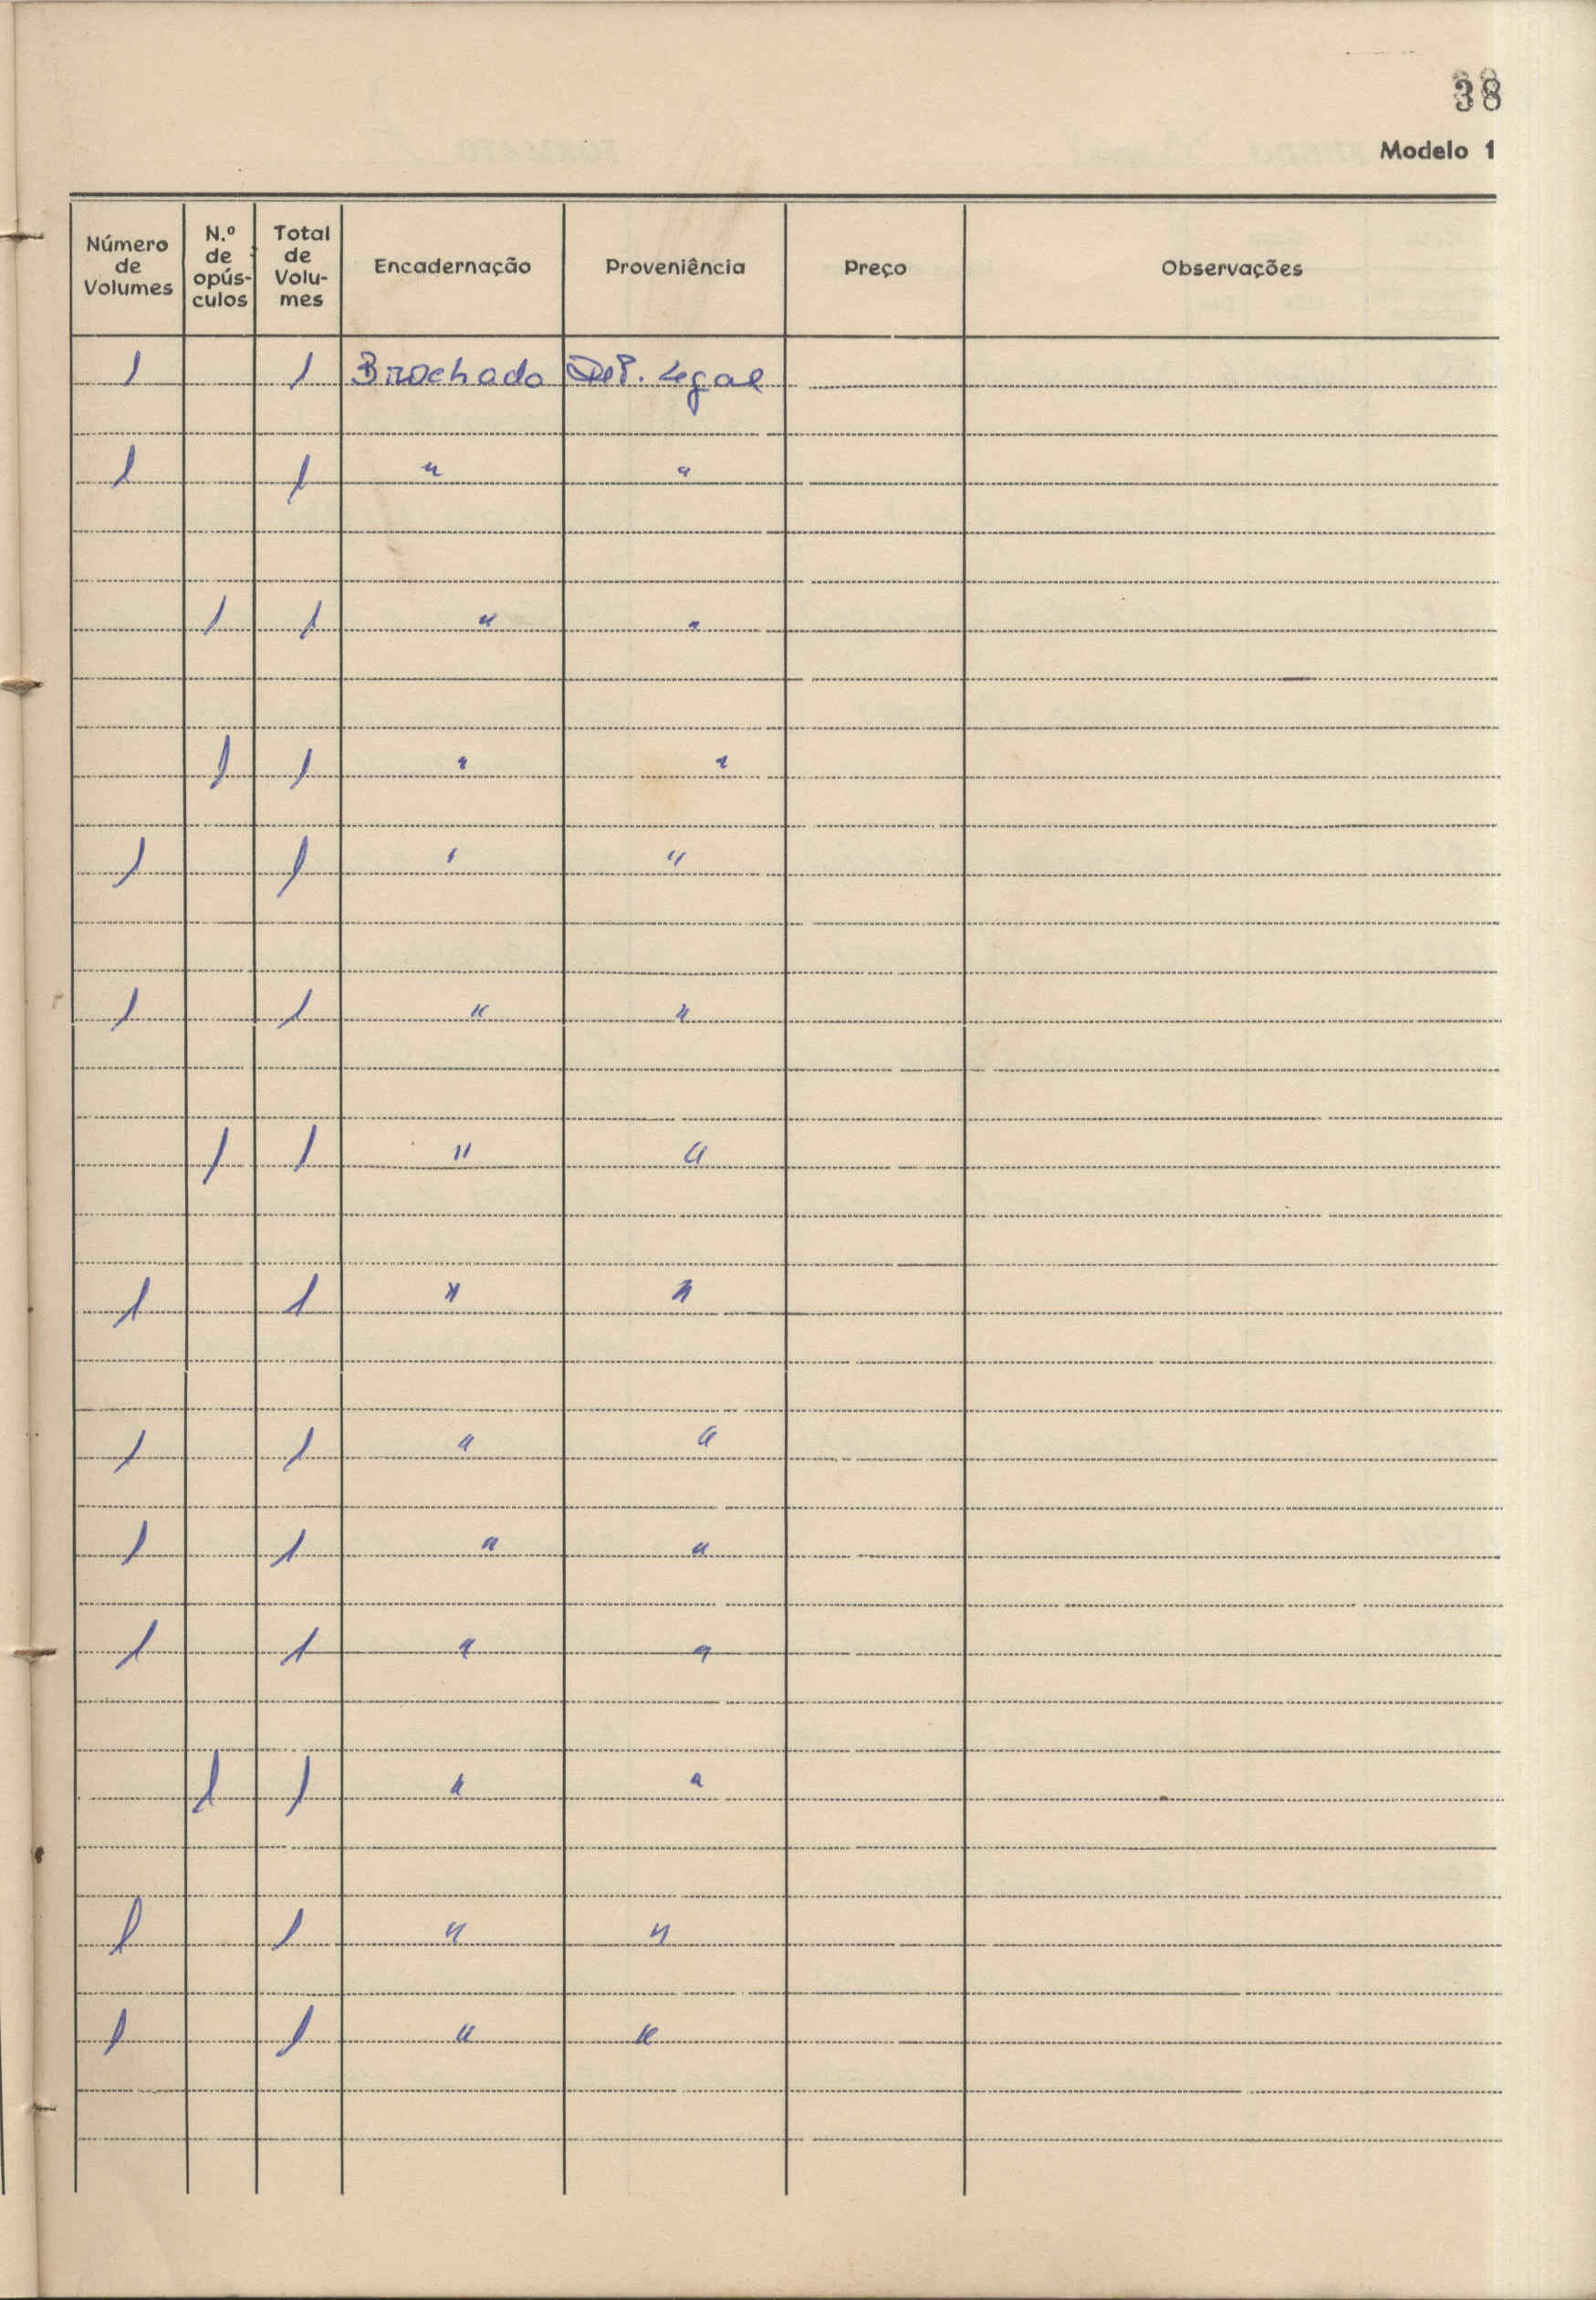 38
Modelo 1
Número de Volumes | N.º de opús-culos | Total de Volu-mes | Encadernação | Proveniência | Preço | Observações
1 | | 1 | Brochado | Dep. Legal
1 | | 1 | " | "
| 1 | 1 | " | "
| 1 | 1 | " | "
1 | | 1 | " | "
1 | | 1 | " | "
| 1 | 1 | " | "
1 | | 1 | " | "
1 | | 1 | " | "
1 | | 1 | " | "
1 | | 1 | " | "
| 1 | 1 | " | "
1 | | 1 | " | "
1 | | 1 | " | "